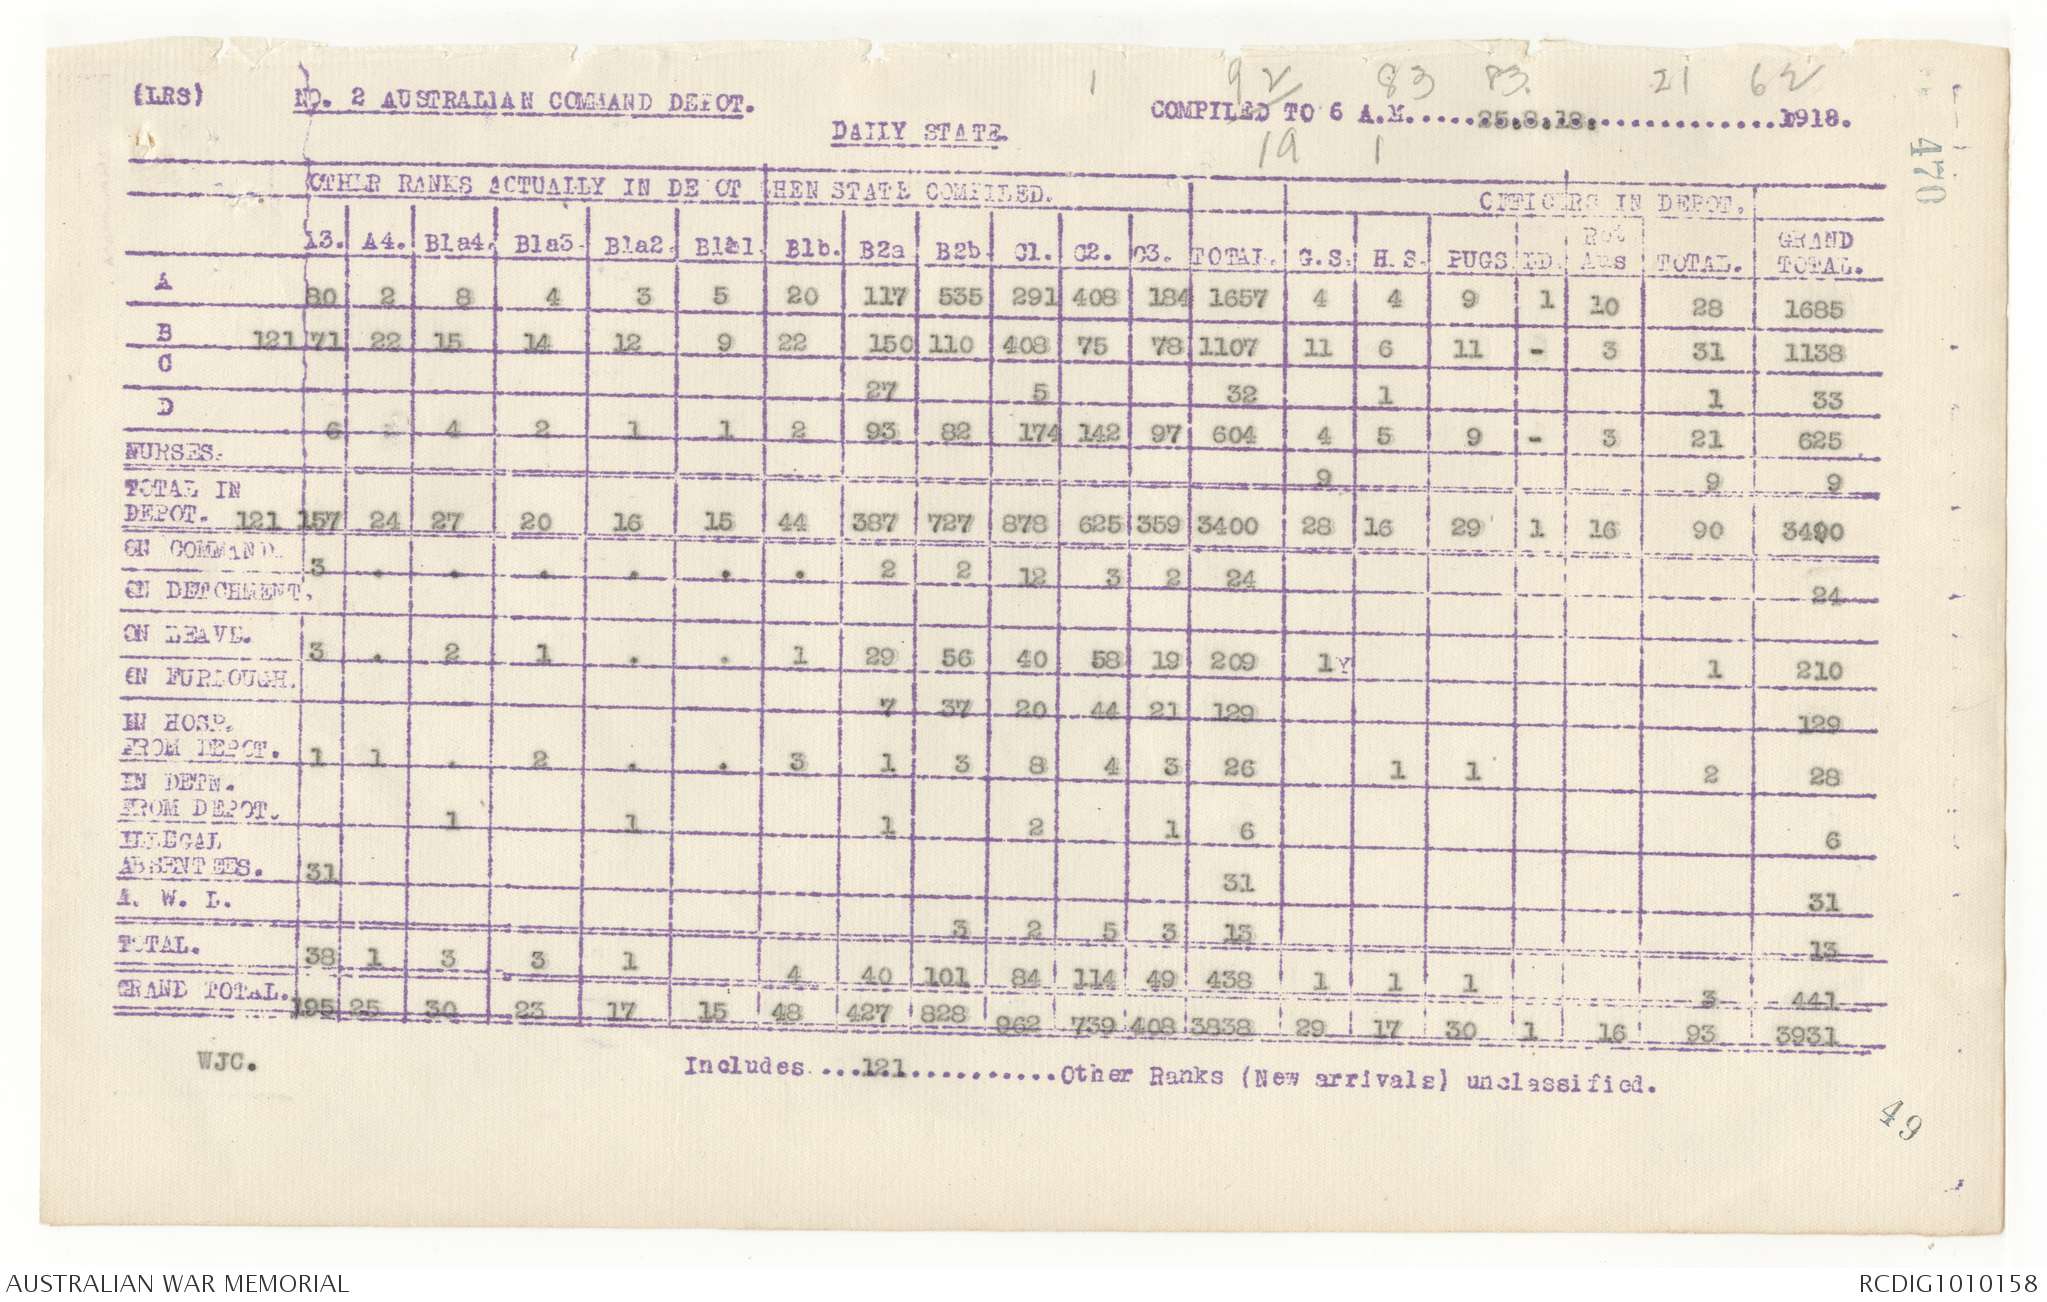 1 92 83 83. 21 62
(LRS) NO. 2 AUSTRALIAN COMMAND DEPOT. COMPILED TO 6 A.M......25.8.18..................1918.
DAILY STATE. 19 1
470
OTHER RANKS ACTUALLY IN DEPOT WHEN STATE COMPILED. OFFICERS IN DEPOT.
A3. A4. B1a4. B1a3. B1a2. B1a1. B1b. B2a B2b. C1. C2. C3. TOTAL. G.S. H.S. PUGS TOTAL. GRAND TOTAL.
A 80 2 8 4 3 5 20 117 535 291 408 184 1657 4 4 9 1 10 28 1685
B 121 71 22 15 14 12 9 22 150 110 408 75 78 1107 11 6 11 - 3 31 1138
C 27 5 32 1 1 33
D 6 4 2 1 1 2 93 82 174 142 97 604 4 5 9 - 3 21 625
NURSES. 9 9 9
TOTAL IN
DEPOT. 121 157 24 27 20 16 15 44 387 727 878 625 359 3400 28 16 29 1 16 90 3490
ON COMMAND. 3 . . . . . . 2 2 12 3 2 24 24
ON DETCHMENT.
ON LEAVE. 3 . 2 1 . . 1 29 56 40 58 19 209 1Y 1 210
ON FURLOUGH. 7 37 20 44 21 129 129
IN HOSP.
FROM DEPOT. 1 1 . 2 . . 3 1 3 8 4 3 26 1 1 2 28
IN DETN.
FROM DEPOT. 1 1 1 2 1 6 6
ILLEGAL
ABSENTEES. 31 31 31
A. W. L. 3 2 5 3 13 13
TOTAL. 38 1 3 3 1 4 40 101 84 114 49 438 1 1 1 3 441
GRAND TOTAL. 195 25 30 23 17 15 48 427 828 962 739 408 3838 29 17 30 1 16 93 3931
WJC. Includes ....121...........Other Ranks (New arrivals) unclassified.
49
AUSTRALIAN WAR MEMORIAL RCDIG1010158